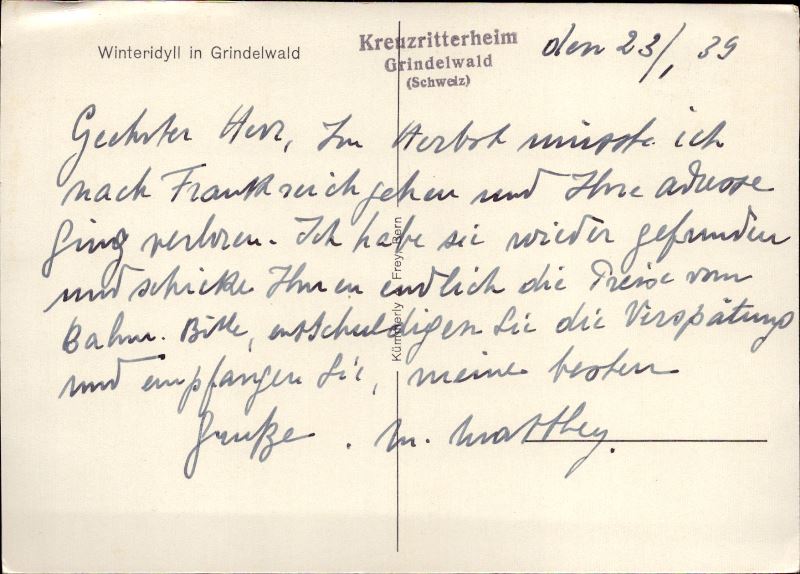 Winteridyll in Grindelwald
Kreuzritterheim
Grindelwald
(Schweiz)
den 23/1 39
Geehrter Herr, Im Herbst musste ich
nach Frankreich gehen und Ihre adresse
ging verloren. Ich habe sie wieder gefunden
und schicke Ihnen endlich die Preise vom
Bahn. Bitte, entschuldigen Sie die Verspätung
und empfangen Sie, meine besten
Grüße. M. Matthey.
Kümmerly Frey, Bern